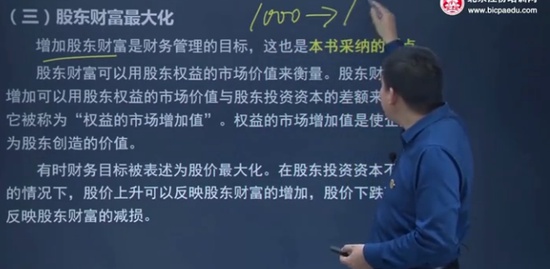 （三）股东财富最大化
1000 → 1
www.bicpaedu.com
增加股东财富是财务管理的目标，这也是本书采纳的 点
股东财富可以用股东权益的市场价值来衡量。股东财
增加可以用股东权益的市场价值与股东投资资本的差额来
它被称为“权益的市场增加值”。权益的市场增加值是使
为股东创造的价值。
有时财务目标被表述为股价最大化。在股东投资资本不
的情况下，股价上升可以反映股东财富的增加，股价下跌
反映股东财富的减损。